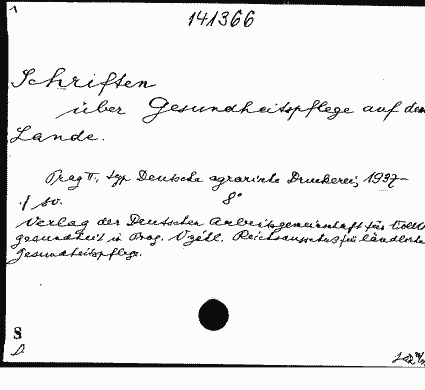 1
141366
Schriften
über Gesundheitspflege auf dem
Lande.
Prag II. typ Deutsche agrarische Druckerei, 1937-
8°
Verlag der Deutschen Arbeitsgemeinschaft für Volks
gesundheit in Prag. Vzděl. Reichsausschuss für ländliche
Gesundheitspflege.
S